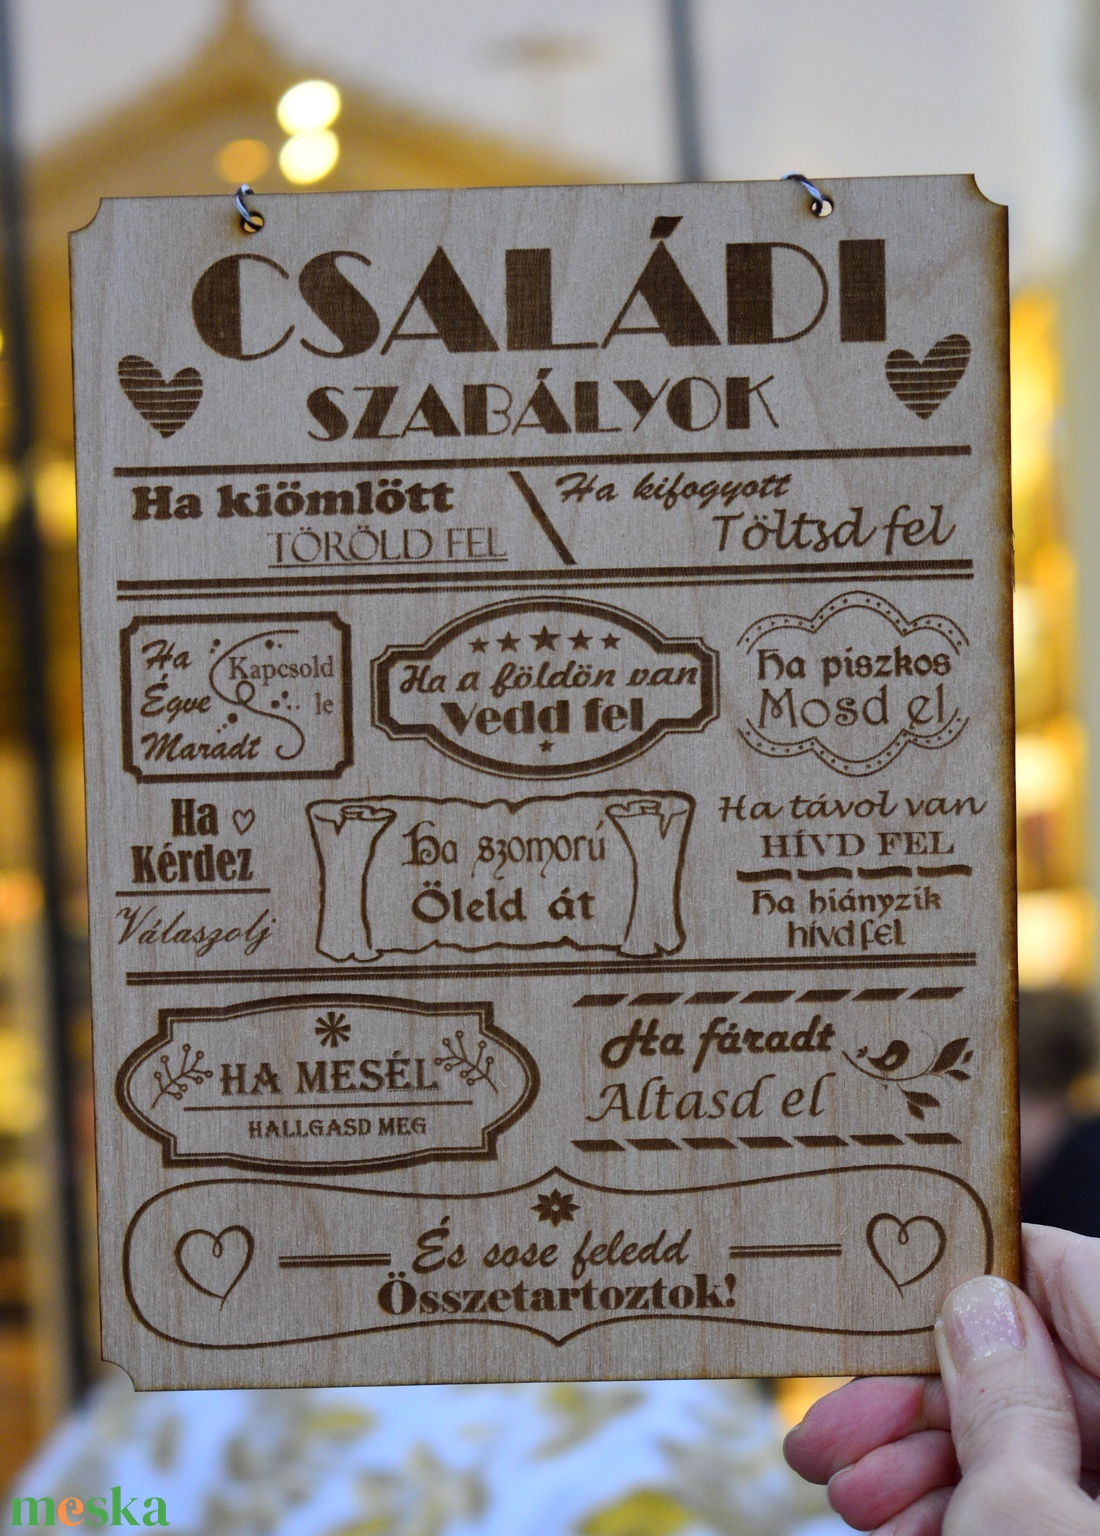 CSALÁDI
SZABÁLYOK
Ha kiömlött
TÖRÖLD FEL
Ha kifogyott
Töltsd fel
Ha
Égve
Maradt
Kapcsold
le
Ha a földön van
Vedd fel
Ha piszkos
Mosd el
Ha
Kérdez
Válaszolj
Ha szomorú
Öleld át
Ha távol van
HÍVD FEL
Ha hiányzik
hívd fel
HA MESÉL
HALLGASD MEG
Ha fáradt
Altasd el
És sose feledd
Összetartoztok!
meska